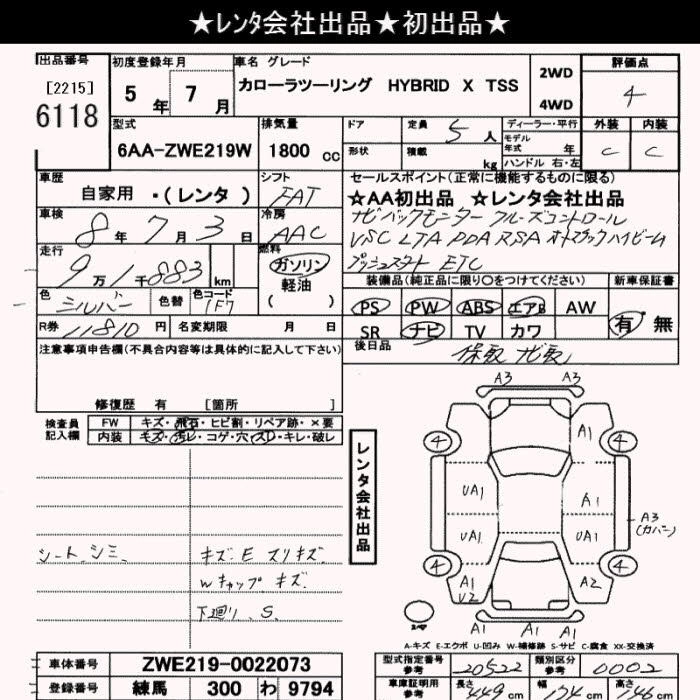 ★レンタ会社出品★初出品★
出品番号 初度登録年月 車名 グレード 評価点
[2215] 5年 7月 カローラツーリング HYBRID X TSS 2WD 4
6118 4WD
型式 排気量 ドア 定員 5人 ディーラー・平行 外装 内装
6AA-ZWE219W 1800 cc 形状 積載 kg モデル年式 年 C C
ハンドル 右・左
車歴 シフト セールスポイント(正常に機能するものに限る)
自家用・(レンタ) FAT ★AA初出品 ★レンタ会社出品
車検 冷房 ナビ バックモニター クルーズコントロール
8年 7月 3日 AAC VSC LTA PDA RSA オートマチックハイビーム
走行 燃料 プッシュスタート ETC
9万1千883km ガソリン 装備品(純正品に限り○をつけてください) 新車保証書
軽油 PS PW ABS エアB AW 有 無
色 シルバー 色替 色コード 1F7 ( ) SR ナビ TV カワ
R券 11810円 名変期限 月 日 後日品 保取 ナビ取
注意事項申告欄(不具合内容等は具体的に記入して下さい)
修復歴 有 [箇所 ]
検査員記入欄 FW キズ・飛石・ヒビ割・リペア跡・×要
内装 キズ・汚レ・コゲ・穴・スレ・キレ・破レ
レンタ会社出品
A3 A3
4 A1 4
UA1 A1
UA1 UA1 A3(カバー)
4 A1 U2 A2 4
A1 A1 A1
シート シミ キズ E スリキズ
Wキャップ キズ
下廻り S
A-キズ E-エクボ U-凹み W-補修跡 S-サビ C-腐食 XX-交換済
車体番号 ZWE219-0022073 型式指定番号 参考 20522 類別区分 参考 0002
登録番号 練馬 300 わ 9794 車庫証明用 参考 長さ 449cm 幅 174cm 高さ 146cm